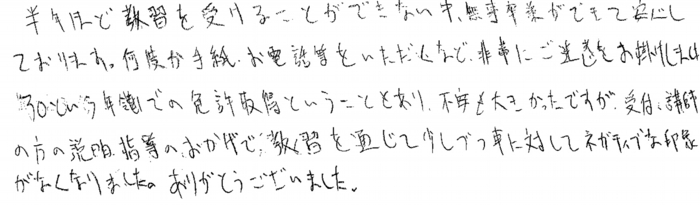 半年ほど教習を受けることができない中、無事卒業ができて安心し
ております。何度か手紙、お電話等をいただくなど、非常にご迷惑をお掛けしました
30という年齢での免許取得ということもあり、不安も大きかったですが、受付、講師
の方の説明、指導のおかげで、教習を通じて少しづつ車に対してネガティブな印象
がなくなりました。ありがとうございました。